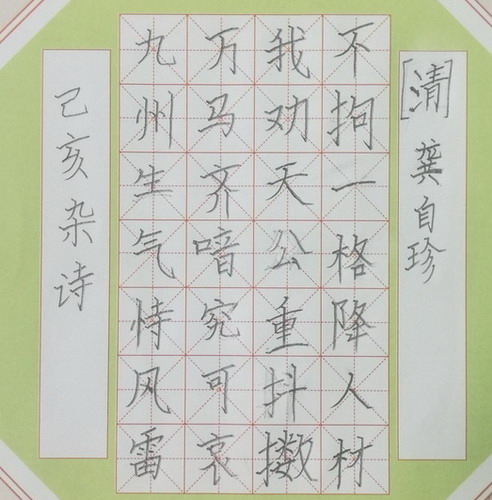 己亥杂诗
九州生气恃风雷
万马齐喑究可哀
我劝天公重抖擞
不拘一格降人材
[清]龚自珍